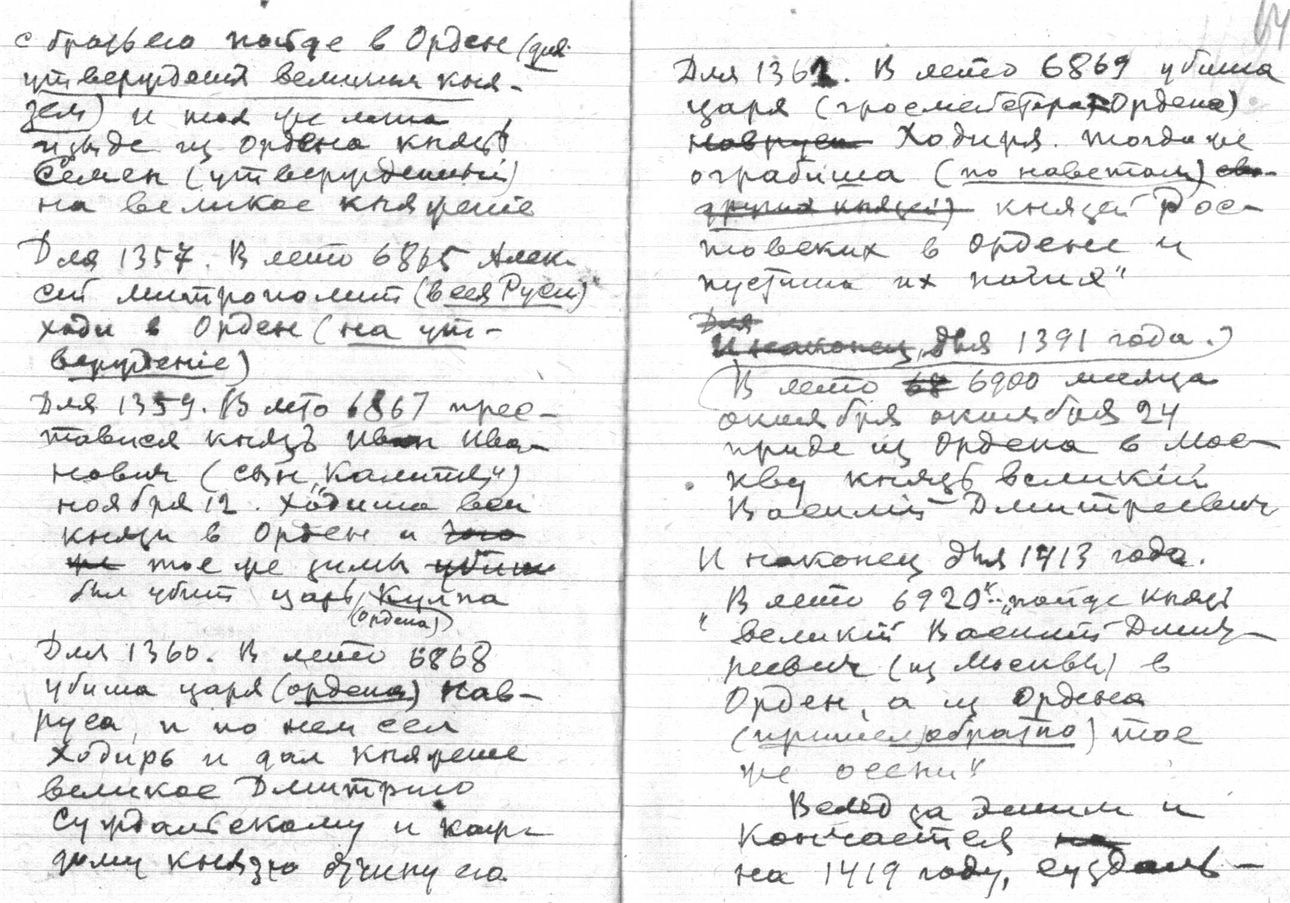 с братьею пойде в Орден (для
утверждения великим кня-
зем) и тоя же лета
изыде из Ордена князь
Семен (утвержденный)
на великое княжение
Для 1357. В лето 6865 Алек-
сей митрополит (всея Руси)
ходи в Орден (на ут-
верждение)
Для 1359. В лето 6867 прес-
тавися князь Иван Ива-
нович (сын „Калиты“)
ноября 12. Ходиша вси
князи в Орден и того
же тое же зимы убиш
был убит царь Кулпа
(Ордена)
Для 1360. В лето 6868
убиша царя (ордена) Нав-
руса, и по нем сел
Ходирь и дал княжение
великое Дмитрию
Суждальскому и каж-
дому князю отчину его
64
Для 1361. В лето 6869 убиша
царя (гросмейстера Ордена)
Навруса Ходиря. тогда же
ограбиша (по наветам)
других князей) князей Рос-
товских в Ордене и
пустиша их нагия“
Для
И наконец, для 1391 года.)
В лето 68 6900 месяца
октября октября 24
приде из Ордена в Мос-
кву князь великий
Василий Дмитриевич
И наконец для 1413 года.
„В лето 6920“.. „пойде князь
великий Василий Дмит-
риевич (из Москвы) в
Орден, а из Ордена
(пришел обратно) тое
же осени“
Вслед за этим и
кончается на
на 1419 году, суздаль-